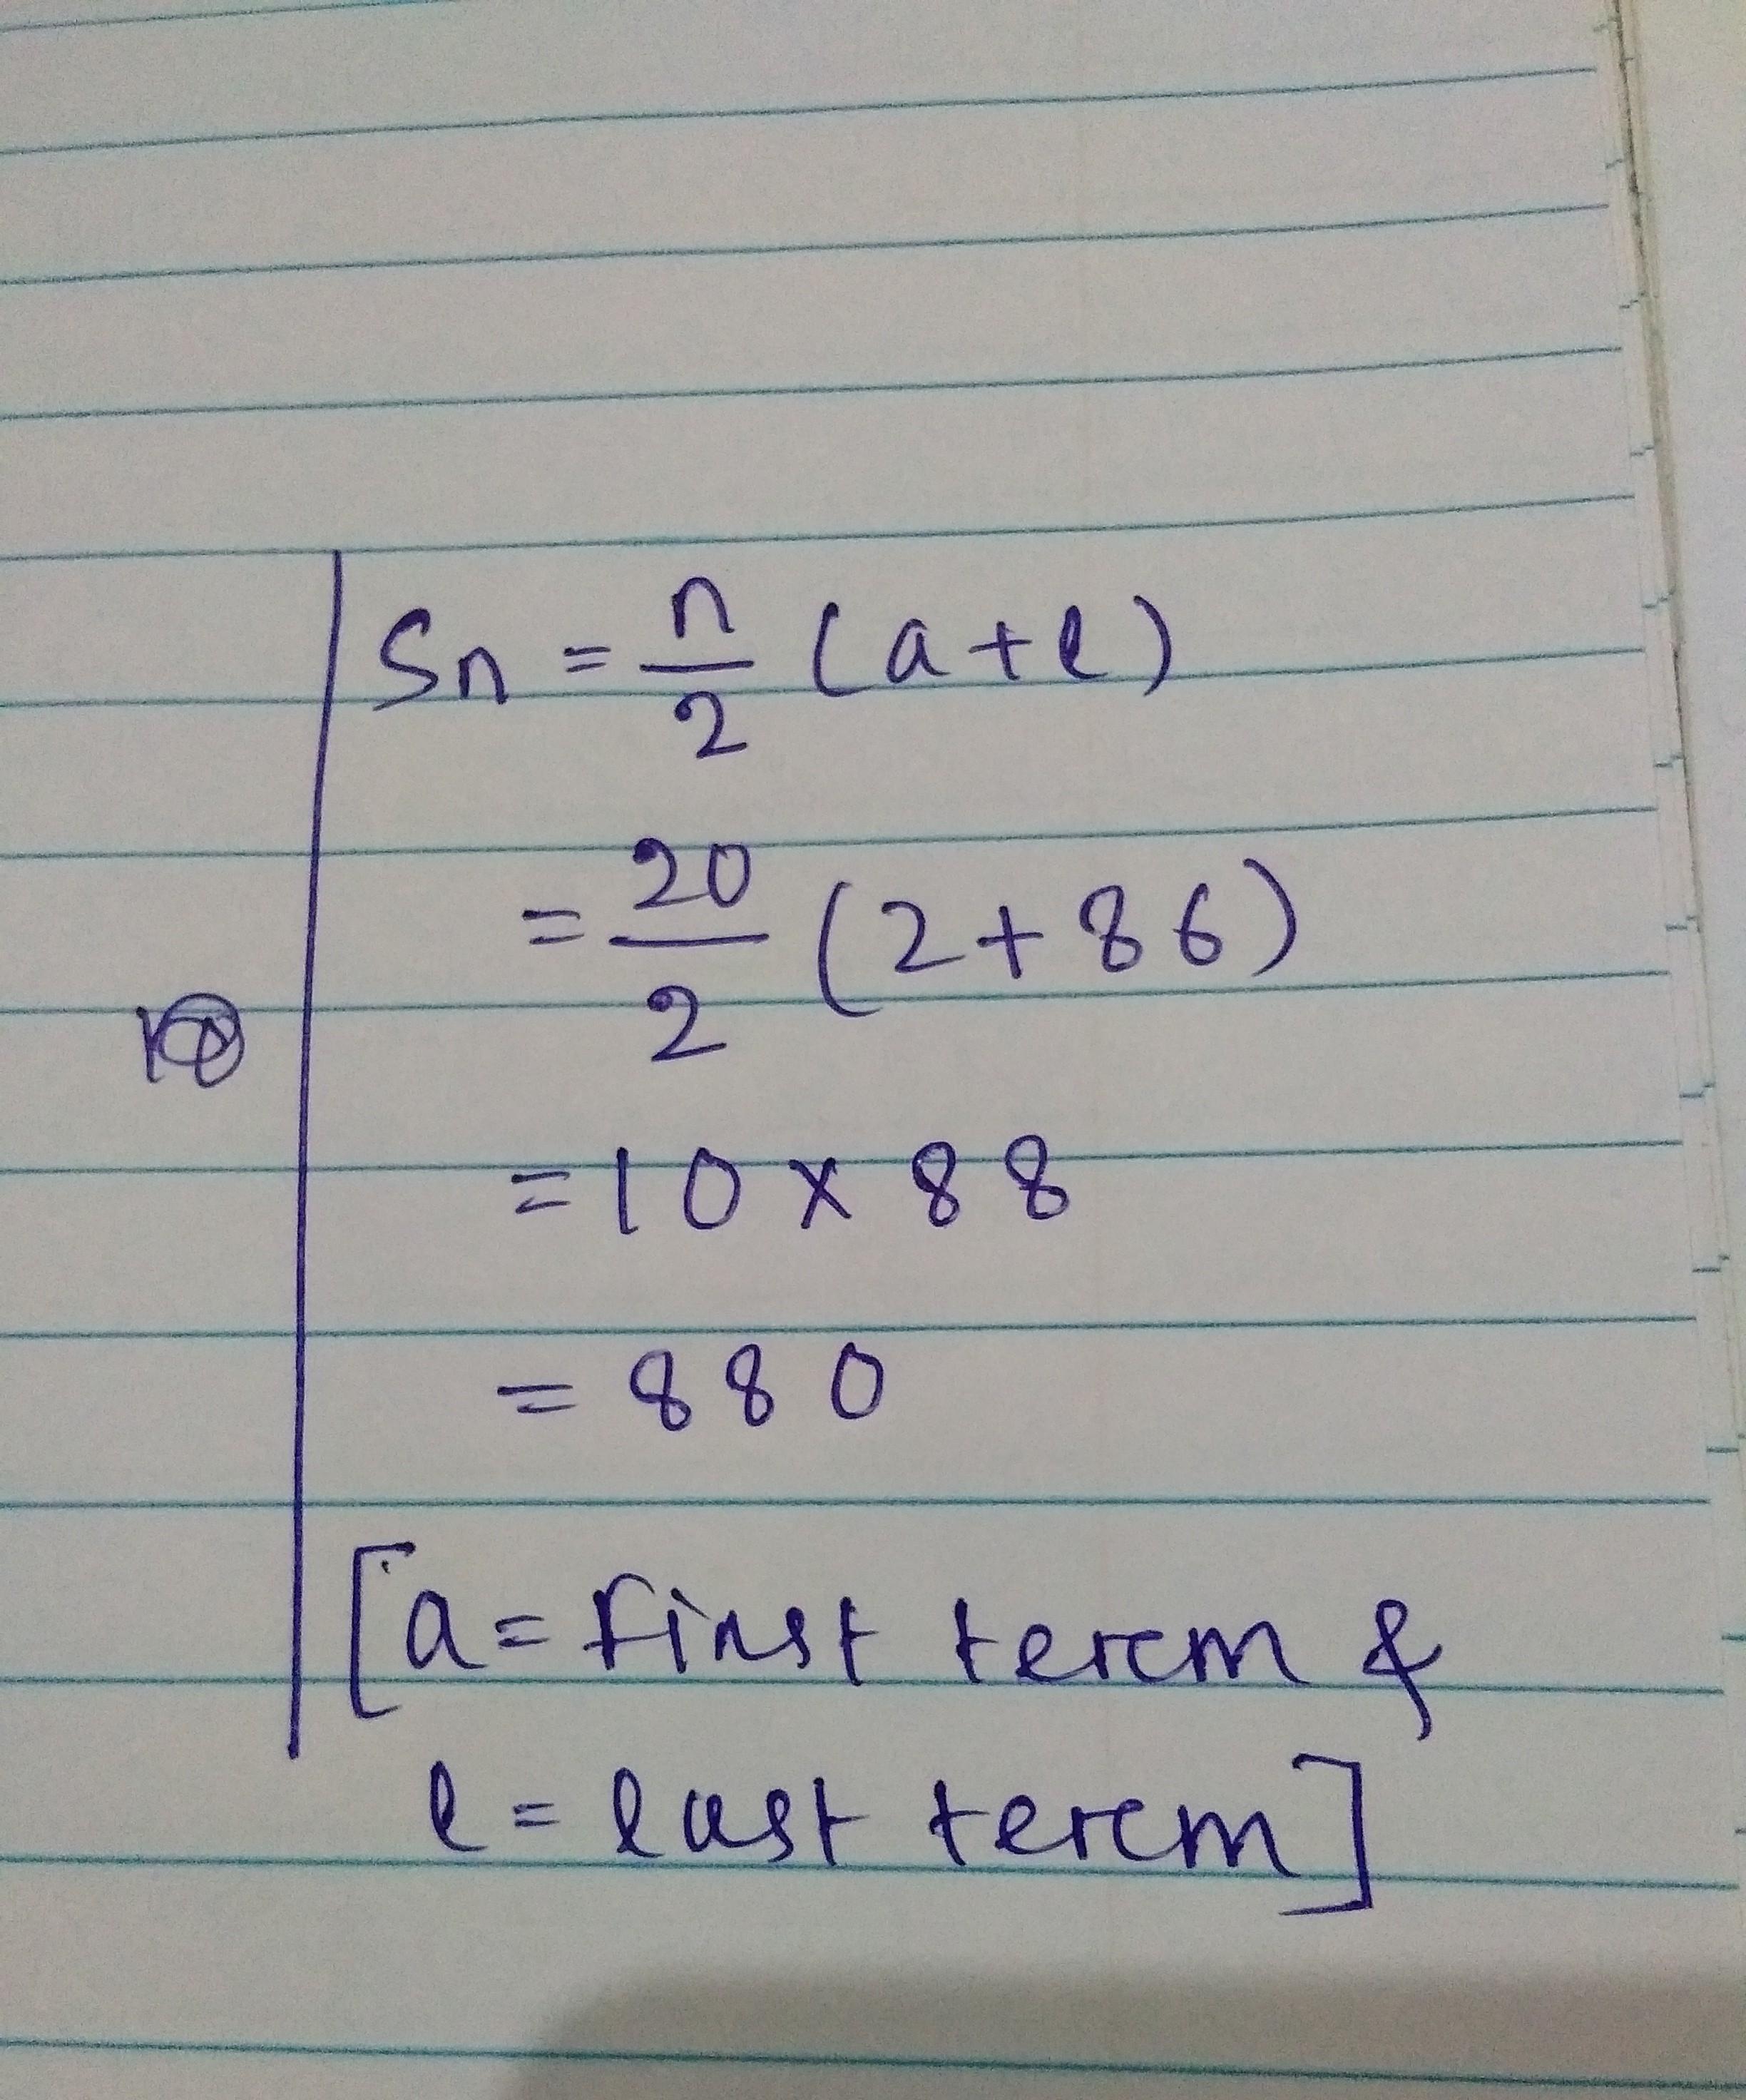 Sn = n/2 (a+l)
= 20/2 (2+86)
= 10 x 88
= 880
[a = First terem &
l = last terem]